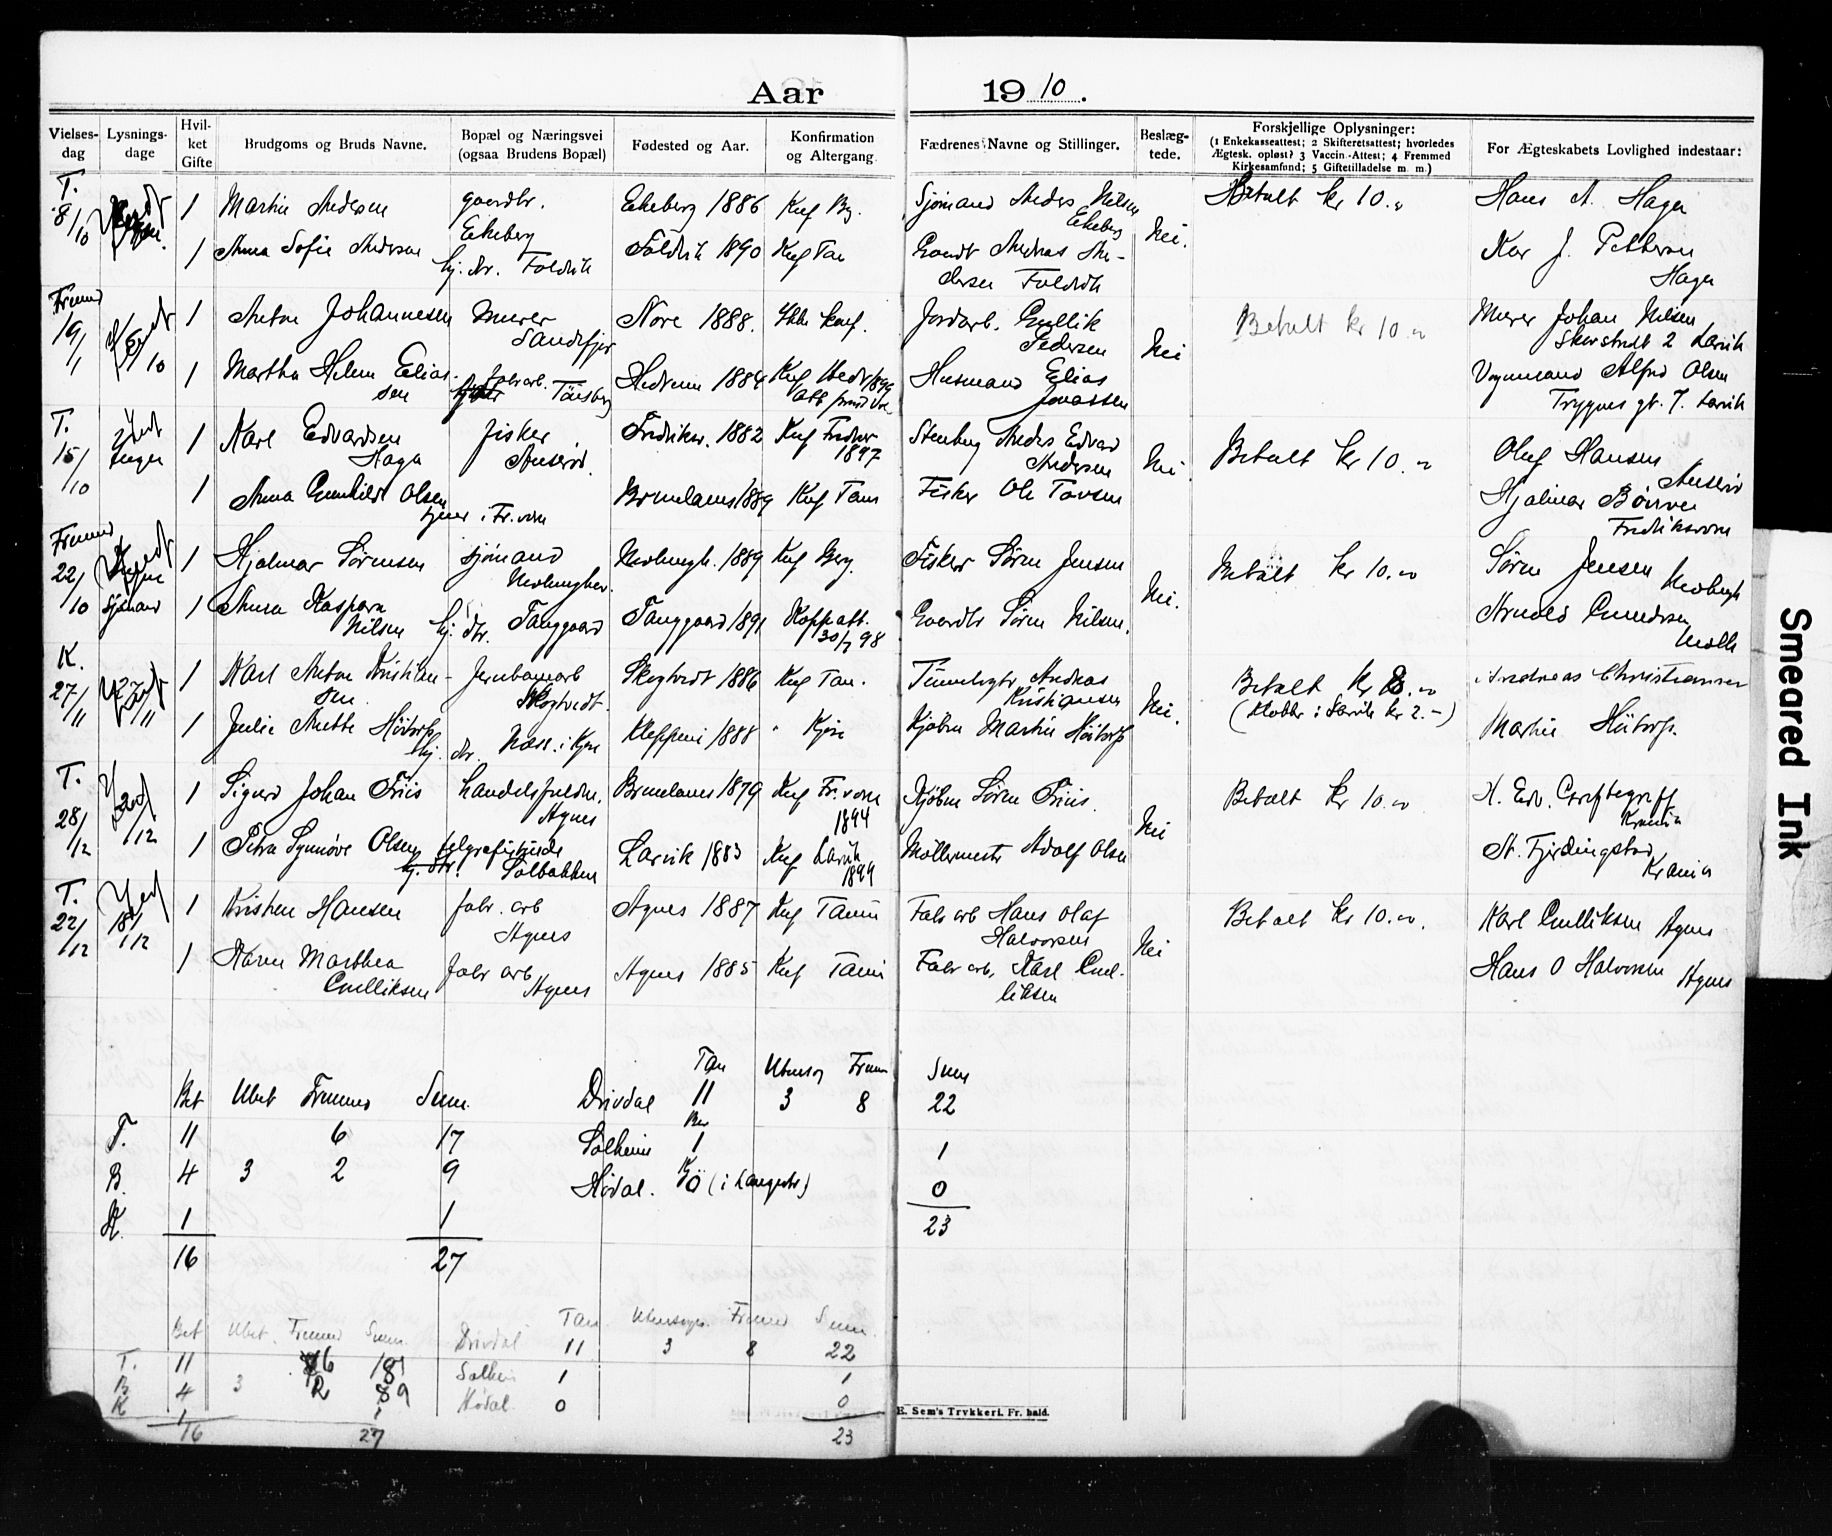 Aar 1910.
Vielses-dag
Lysnings-dage
Hvil-ket Gifte
Brudgoms og Bruds Navne.
Bopæl og Næringsvei (ogsaa Brudens Bopæl)
Fødested og Aar.
Konfirmation og Altergang.
Fædrenes Navne og Stillinger.
Beslæg-tede.
Forskjellige Oplysninger:
(1 Enkekasseattest; 2 Skifteretsattest; hvorledes
Ægtesk. opløst? 3 Vaccin-Attest; 4 Fremmed
Kirkesamfund; 5 Giftetilladelse m. m.)
For Ægteskabets Lovlighed indestaar:
T. 8/10
1 Martin Andersen gaardbr. Ekeberg Ekeberg 1886 Knf Bg. Sjømand Anders Nilsen Ekeberg Nei. Betalt kr 10.„ Hans A. Haga
1 Anna Sofie Andersen hj. dr. Foldvik Foldvik 1890 Knf Tan Gaardb Andreas An-
dersen Foldvik
J. Pettersen
Haga
Fremd 19/1
1 Anton Johannesen Murer Sandefjor Nore 1888. Ikke konf. Jordarb. Gullik Pedersen Nei Betalt kr 10.„ Murer Johan Nilsen
2 Larvik
1 Martha Helene Elias-
sen
fabr arb. Tönsberg Hedrum 1884 Knf Hedr 1899 Husmand Elias Jonassen
Vognmand Alfred Olsen
Trygves gt. 7. Larvik
T. 15/10
1 Karl Edvardsen
Haga
fisker
Anserød.
Fredriksv. 1882 Knf Fredksv 1897 Stenhug Anders Edvard
Andersen
Nei. Betalt kr 10.„ Oluf Hansen
Anserød
1 Anna Gunhild Olsen tjener i Fr.vern Brunlanes 1889 Knf Tan Fisker Ole Tovsen Hjalmar
Fredriksvern
Fremd 22/10
Sjømand
1 Hjalmar Sørensen sjømand
Nevlunghvn.
Nevlungh. 1889 Knf Berg. Fisker Søren Jensen Nei. Betalt kr 10.„ Søren Jensen Nevlungh
1 Anna Kaspara
Nilsen
hj. dtr. Fanggaard Fanggaard 1891 Koppatt.
30/7 98
Gaardbr Søren Nilsen. Arnold Gundersen
K. 27/11
27/11
1 Karl Anton Kristian-
sen
Jernbanearb
Skogtvedt.
Skogtvedt 1886 Knf Tan. Tømmerhugr Andreas
Kristiansen
Nei. Betalt kr 8.„
(Klokker i Larvik kr 2.–)
Andreas Christiansen
1 Julie Anette Høitorp hj. dr. Næss i Kjose Kleppene 1888 „ Kjose Kjøbm Martin Høitorp Martin Høitorp.
T. 28/12
1 Sigurd Johan Friis handelsfuldm.
Agnes
Brunlanes 1879 Knf Fr.vern
1894
Kjøbm Søren Friis. Nei Betalt kr 10.„ H. Edv.
Krania
1 Petra Synnøve Olsen telegrafistinde
hj. dtr. Solbakken
Larvik 1883 Knf Larvik
1899
Møllermester Adolf Olsen St. Fjerdingstad
Krania
T. 22/12
18/12
1 Kristen Hansen fabr. arb
Agnes
Agnes 1887 Knf Tanum Fabr arb Hans Olaf
Halvorsen
Nei Betalt kr 10.„. Karl Gulliksen Agnes
1 Karen Marthea
Gulliksen
fabr arb
Agnes
Agnes 1885 Knf Tanum Fabr arb, Karl Gul-
liksen
Hans O Halvorsen Agnes
Bet Ubet Fremmed Sum
T. 11 6 17
B. 4 3 2 9
K. 1 1
16 27
Tan Utensog Fremm Sum
Drivdal 11 3 8 22
Ber
Solheim 1 1
Hövdal. Kjö (i Langestr) 0
23
Bet Ubet. Fremmed Sum.
T. 11 6 18
B 4 3 2 9
K 1 1
16 27
Tan. Utensogn. Fremmed Sum.
Drivdal 11 3 8 22
Solheim 1 1
Hövdal. 0 0
23
E. Sem's Trykkeri. Fr. hald.
Smeared Ink